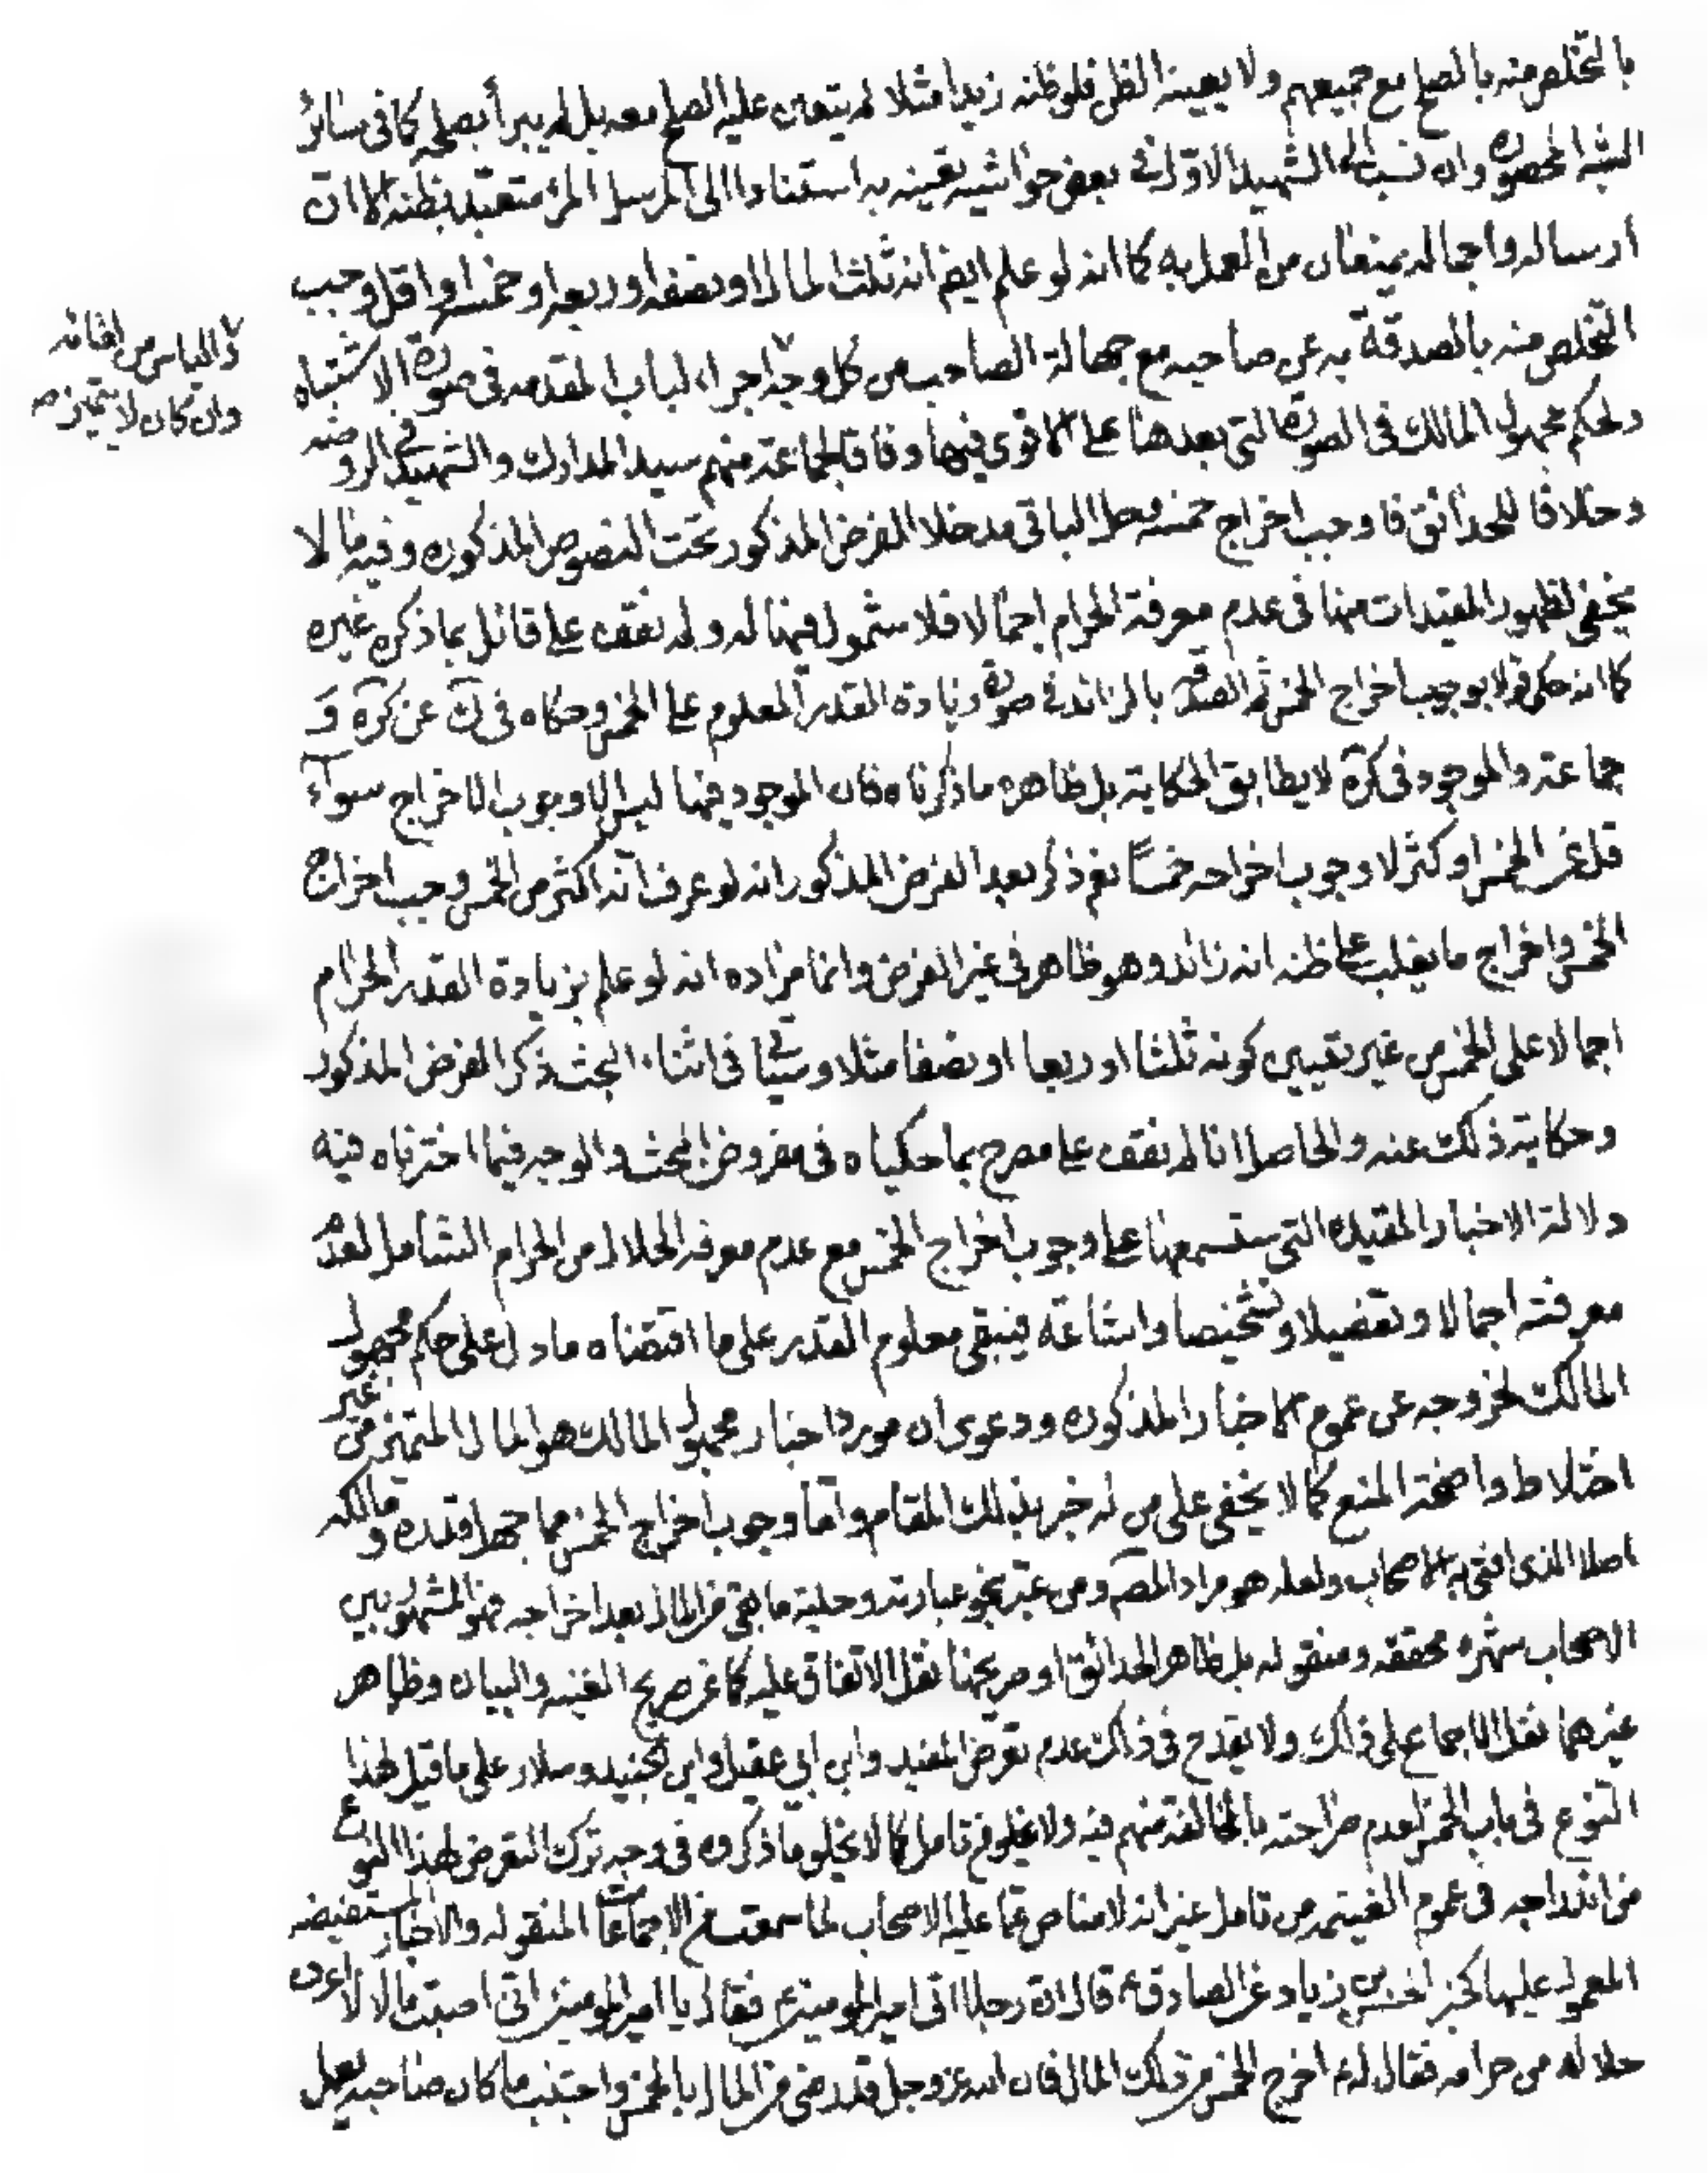 بالتخلص منه بالصلح مع جميعهم ولا يعينه الظن فلو ظنه زيدا مثلا لم يتعين عليه الصلح معه بل لم يبرأ بصلحه كما في سائر
الشبه المحصوره وان نسب الى الشهيد الاول في بعض حواشيه تعينه به استنادا الى المرسل المرء متعبد بظنه الا ان
ارساله واجماله يمنعان من العمل به كما انه لو علم ايض انه ثلث المال او نصفه او ربعه او خمسه او اقل وجب
التخلص منه بالصدقة به عن صاحبه مع جهالة الصاحب من كل وجه اجراء لباب المقدمه في صورة الاشتباه
ولحكم مجهول المالك في الصورة التي بعدها على الاقوى فيهما وفاقا لجماعة منهم سيد المدارك والشهيد في الروضه
وخلافا للحدائق فاوجب اخراج خمسه وحل الباقي مدخلا الفرض المذكور تحت النصوص المذكوره وفيه ما لا
يخفى لظهور المقيدات منها في عدم معرفة الحرام اجمالا فلا شمول فيها له ولم نقف على قائل بما ذكره غيره
كما انه حكى قولا بوجوب اخراج الخمس ثم الصدقة بالزائد في صورة زيادة القدر المعلوم على الخمس وحكاه في ك عن كره و
جماعة والموجود في كرة لا يطابق الحكاية بل ظاهره ما ذكرناه فان الموجود فيها ليس الا وجوب الاخراج سواء
قل عن الخمس او كثر لا وجوب اخراجه خمسا نعم ذكر بعد الفرض المذكور انه لو عرف انه اكثر من الخمس وجب اخراج
الخمس واخراج ما يغلب على ظنه انه زائد وهو ظاهر في غير الفرض وانما مراده انه لو علم بزيادة القدر الحرام
اجمالا على الخمس من غير تعيين كونه ثلثا او ربعا او نصفا مثلا وسيأتي في اثناء البحث ذكر الفرض المذكور
وحكاية ذلك عنه والحاصل انا لم نقف على مصرح بما حكياه في مفروض البحث والوجه فيما اخترناه فيه
دلالة الاخبار المقيده التي ستسمعها على وجوب اخراج الخمس مع عدم معرفه الحلال من الحرام الشامل لعدم
معرفته اجمالا وتفصيلا وتشخيصا واشاعة فيبقى معلوم القدر على ما اقتضاه ما دل على حكم مجهول
المالك لخروجه عن عموم الاخبار المذكوره ودعوى ان مورد اخبار مجهول المالك هو المال المتميز من غير
اختلاط واضحة المنع كما لا يخفى على من له خبر بذلك المقام واما وجوب اخراج الخمس مما جهل قدره ومالكه
اصلا الذى افتى به الاصحاب ولعله هو مراد المص ومن عبر بنحو عبارته وحلية ما بقي من المال بعد اخراجه فهو المشهور بين
الاصحاب شهره محققه ومنقوله بل ظاهر الحدائق او صريحها نقل الاتفاق عليه كما عن صريح الغنيه والبيان وظاهر
غيرهما نقل الاجماع على ذلك ولا يقدح في ذلك عدم تعرض المفيد وابن ابي عقيل وابن الجنيد وسلار على ما قيل لهذا
النوع في باب الخمس لعدم صراحته بالمخالفة منهم فيه ولا يخلو من تامل كما لا يخلو ما ذكروه في وجه ترك التعرض لهذا النوع
من اندراجه في عموم الغنيمه من تامل غير انه لا مناص عما عليه الاصحاب لما سمعت من الاجماعات المنقوله والاخبار المستفيضه
المعمول عليها كخبر الحسن بن زياد عن الصادق ع قال ان رجلا اتى امير المومنين ع فقال يا امير المومنين اني اصبت مالا لا اعرف
حلاله من حرامه فقال له ع اخرج الخمس من ذلك المال فان الله عز وجل قد رضى من المال بالخمس واجتنب ما كان صاحبه يعمل
و الياس من لقائه
وان كان لا يتميز صح